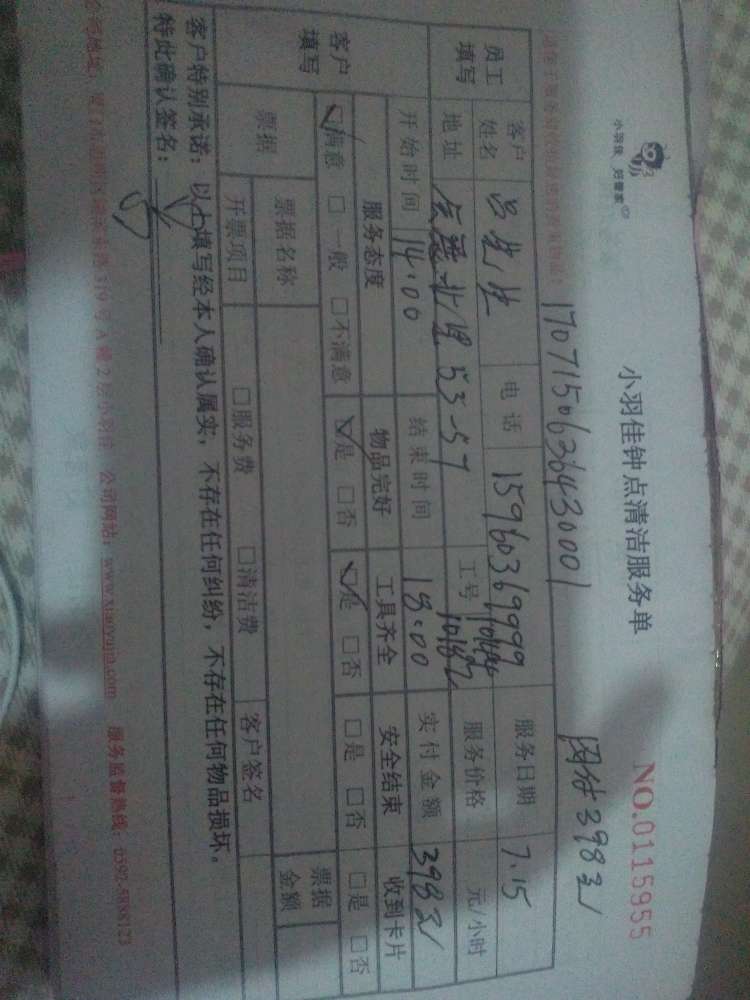 小羽佳 好管家
小羽佳钟点清洁服务单
NO.0115955
17071506363430001
网付398元
员工填写
客户姓名 吕先生 电话 15960369999 服务日期 7.15
地址 53-57 工号 10182 服务价格 元/小时
开始时间 14:00 结束时间 18:00 实付金额 398元
客户填写
服务态度 物品完好 工具齐全 安全结束 收到卡片
☑满意 □一般 □不满意 ☑是 □否 ☑是 □否 □是 □否 □是 □否
票据 票据名称 票据金额
开票项目 □服务费 □清洁费 客户签名
客户特别承诺：以上填写经本人确认属实，不存在任何纠纷，不存在任何物品损坏。
特此确认签名：
319号A幢2层小羽佳 公司网站：www.xiaoyujia.com 服务监督热线：0592-5898123